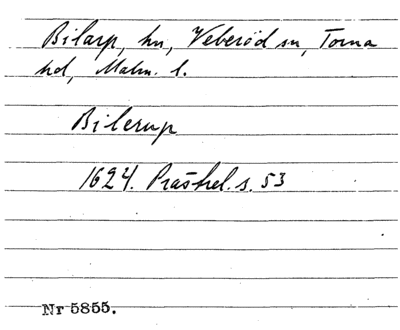 Bilarp, hn, Veberöd sn, Torna
hd, Malm. l.
Bilerup
1624. Prästrel. s. 53
Nr 5855.